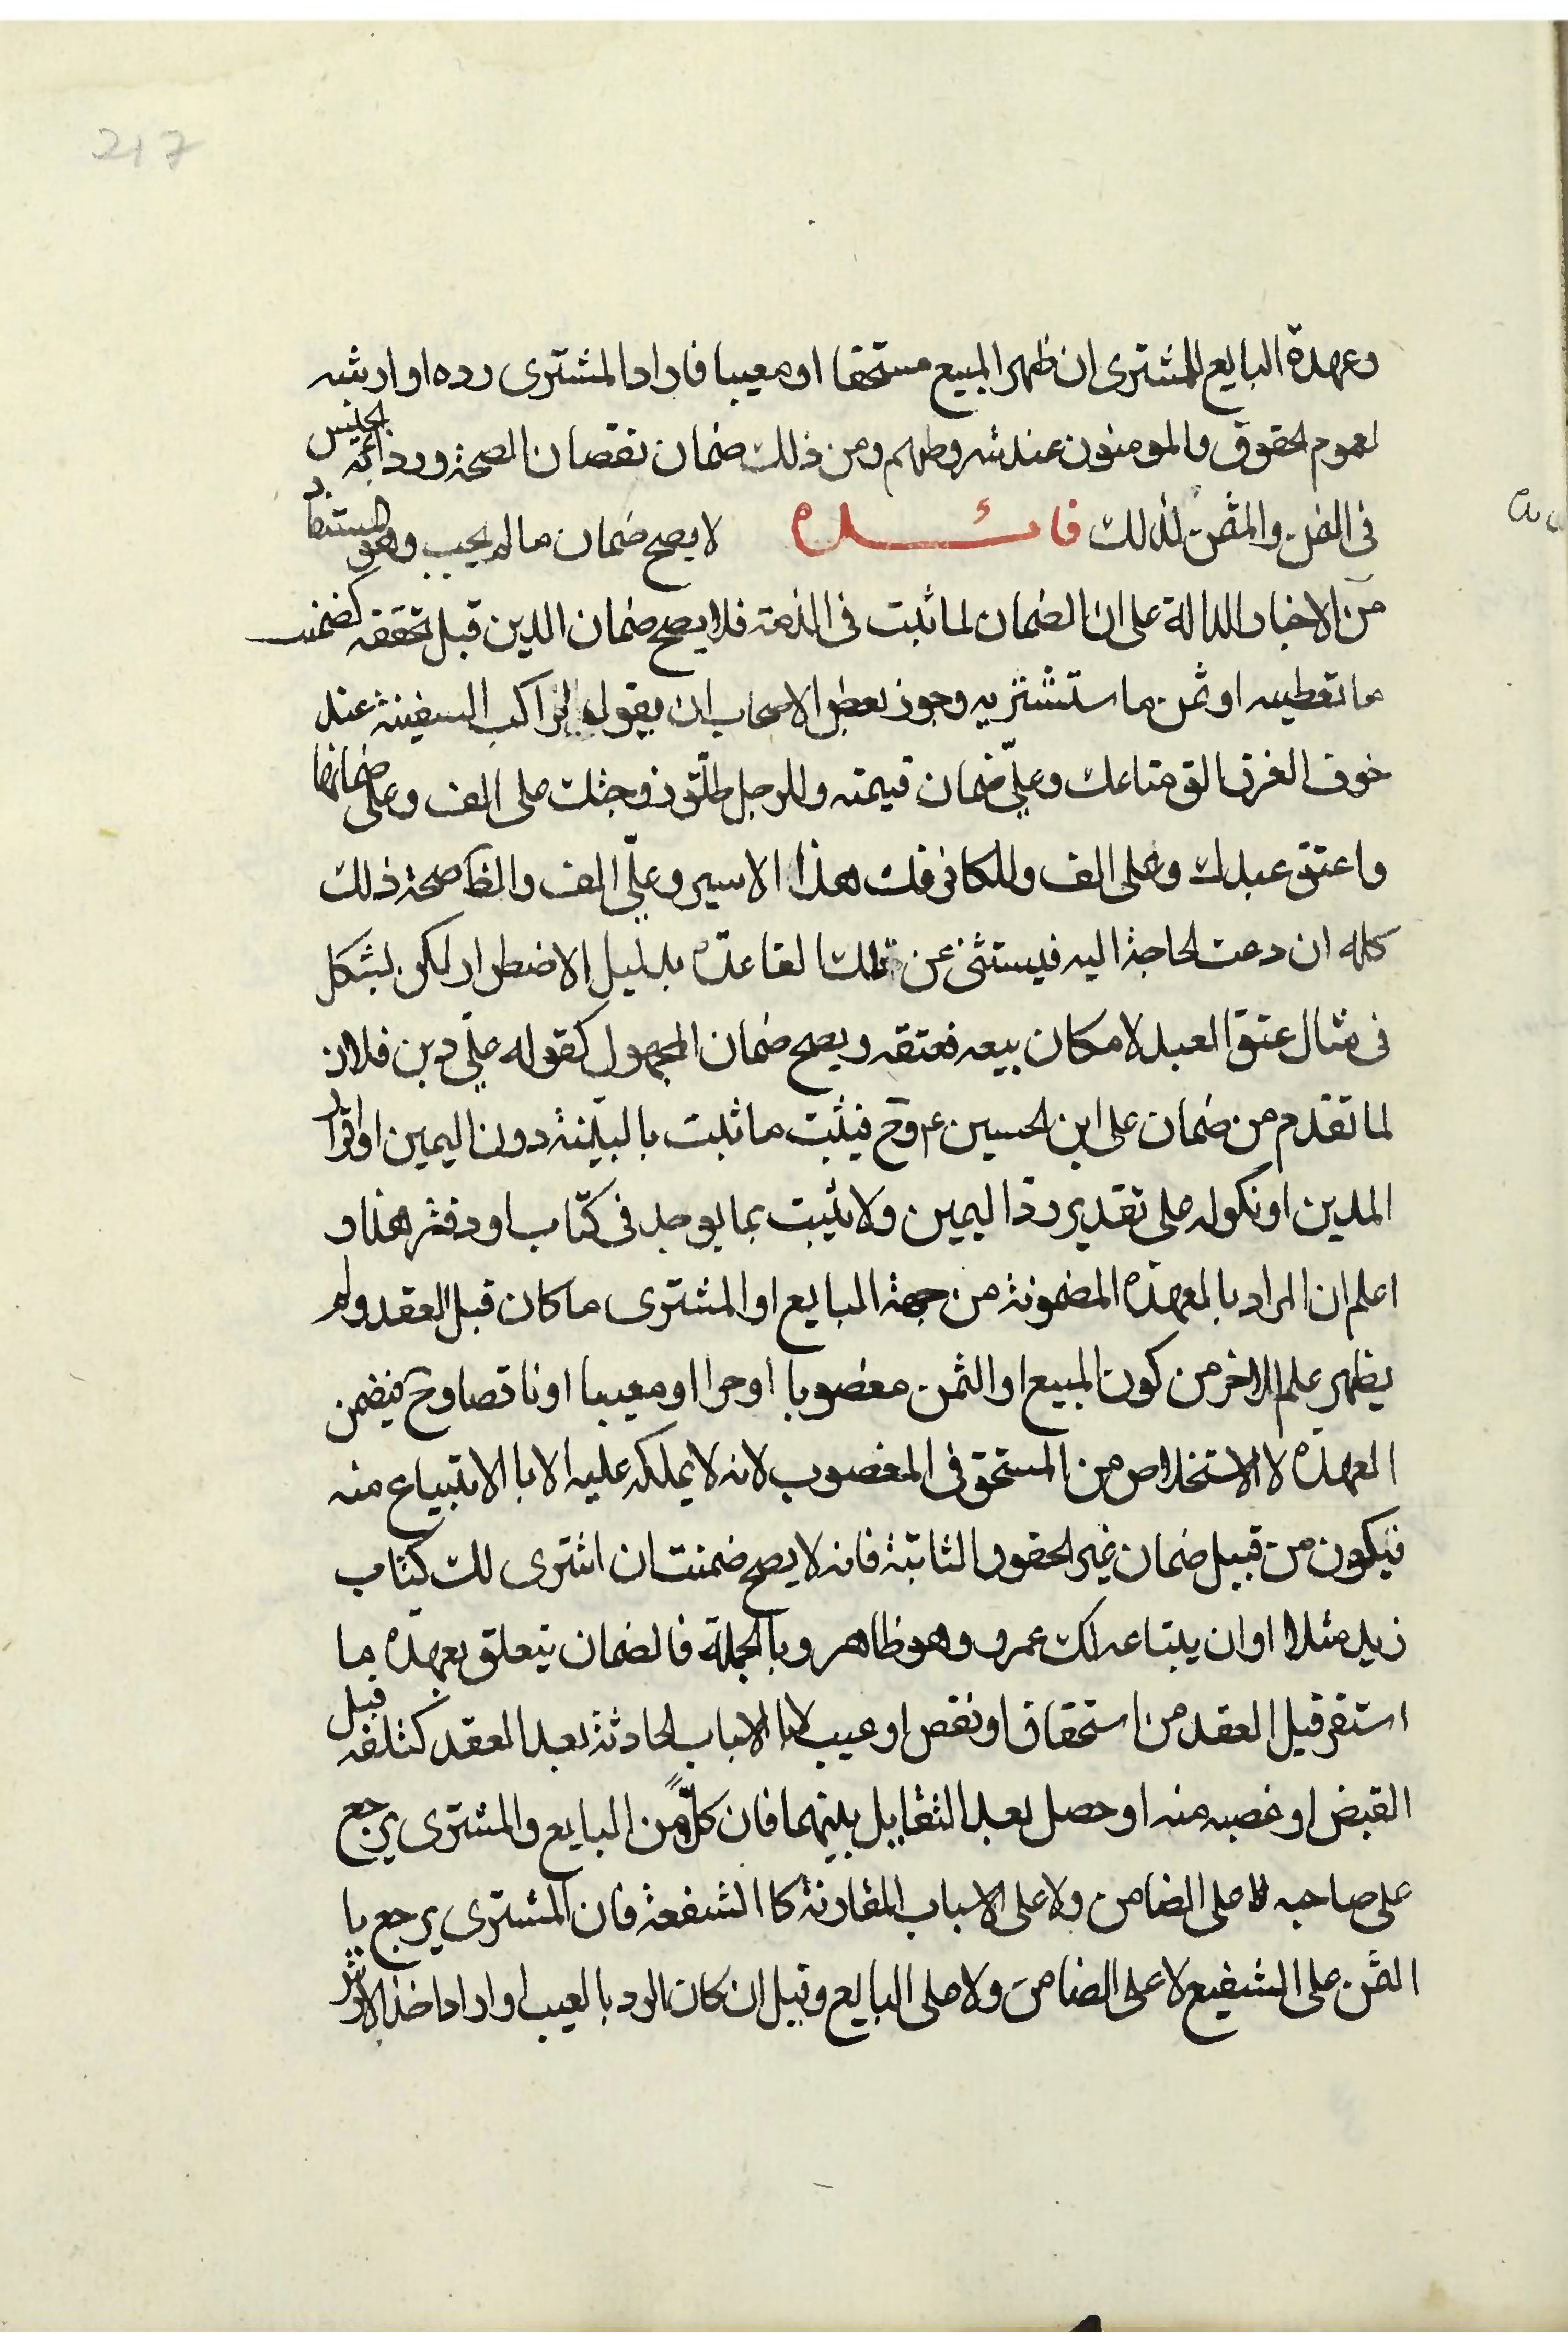 217
وعهدة البايع للمشترى ان ظهر المبيع مستحقا او معيبا فاراد المشترى رده او ارشه
لعموم الحقوق والمومنون عند شروطهم ومن ذلك ضمان نقصان الصحة ورداءة الجنس
فى الثمن والمثمن لذلك فائده لا يصح ضمان ما لم يجب وهو المستفاد
من الاخبار الدالة على ان الضمان لما ثبت فى الذمة فلا يصح ضمان الدين قبل تحققه كضمنت
ما تعطيه او ثمن ما ستشتريه وجوز بعض الاصحاب ان يقول لراكب السفينة عند
خوف الغرق الق متاعك وعلىّ ضمان قيمته وللرجل طلّق زوجتك على الف وعلى ضمانها
واعتق عبدك وعلى الف وللكافر فك هذا الاسير وعلىّ الف والظا صحة ذلك
كله ان دعت الحاجة اليه فيستثنى عن تلك القاعدة بدليل الاضطرار لكن يشكل
فى مثال عتق العبد لامكان بيعه فعتقه ويصح ضمان المجهول كقوله علىّ دين فلان
لما تقدم من ضمان على ابن الحسين ع وح فيثبت ما ثبت بالبيّنة دون اليمين او اقرار
المدين او نكوله على تقدير ردّ اليمين ولا يثبت بما يوجد فى كتاب او دفتر هذا و
اعلم ان المراد بالعهدة المضمونة من جهة البايع او المشترى ما كان قبل العقد ولم
يظهر علم الاخر من كون المبيع او الثمن مغصوبا او حرا او معيبا او ناقصا وح فيضمن
العهدة لا الاستخلاص من المستحق فى المغصوب لانه لا يملكه عليه الا با الابتياع منه
فيكون من قبيل ضمان غير الحقوق الثابتة فانه لا يصح ضمنت ان اشترى لك كتاب
زيد مثلا او ان يبتاعه لك عمرو وهو ظاهر وبالجملة فالضمان يتعلق بعهدة ما
استقر قبل العقد من استحقاق او نقص او عيب لا الاسباب الحادثة بعد العقد كتلفه قبل
القبض او غصبه منه او حصل بعد التقايل بينهما فان كلّاً من البايع والمشترى يرجع
على صاحبه لا على الضامن ولا على الاسباب المقارنة كا الشفعة فان المشترى يرجع با
الثمن على الشفيع لا على الضامن ولا على البايع وقيل ان كان الرد با لعيب او اراد اخذ الارش